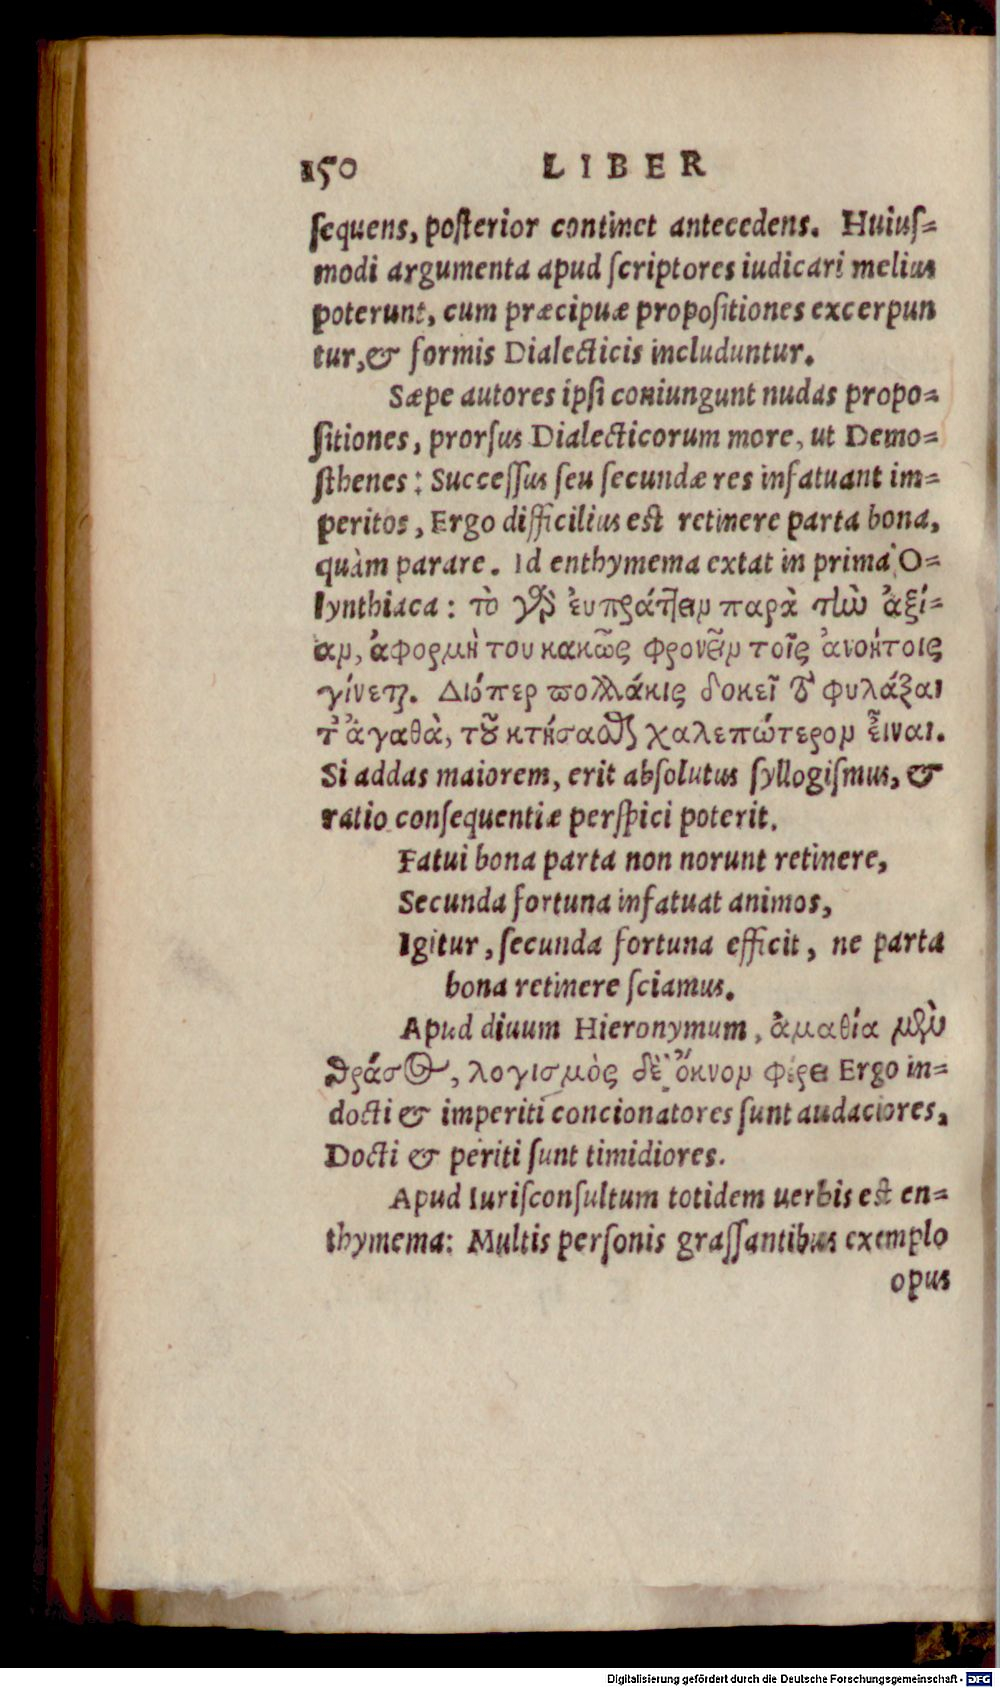 150 LIBER
ſequens, poſterior continet antecedens. Huiuſ=
modi argumenta apud ſcriptores iudicari melius
poterunt, cum præcipuæ propoſitiones excerpun
tur, & formis Dialecticis includuntur.
Sæpe autores ipſi coniungunt nudas propo=
ſitiones, prorſus Dialecticorum more, ut Demo=
ſthenes: Succeſſus ſeu ſecundæ res infatuant im=
peritos, Ergo difficilius eſt retinere parta bona,
quàm parare. Id enthymema extat in prima O=
lynthiaca: τὸ γὸ ἐυπράτ]ειν παρὰ τἰὼ ἀξί=
αν, ἀφορμὴ του κακῶς φρονεῖν τοῖς ἀνοήτοις
γίνεται. Διόπερ πολλάκις δοκεῖ τὸ φυλάξαι
τ᾽ἀγαθὰ, τοῦ κτήσασθαι χαλεπώτερον εἶναι.
Si addas maiorem, erit abſolutus ſyllogiſmus, &
ratio conſequentiæ perſpici poterit.
Fatui bona parta non norunt retinere,
Secunda fortuna infatuat animos,
Igitur, ſecunda fortuna efficit, ne parta
bona retinere ſciamus.
Apud diuum Hieronymum, ἀμαθία μὲν
θράσος, λογισμὸς δὲ ὄκνον φέρει Ergo in=
docti & imperiti concionatores ſunt audaciores,
Docti & periti ſunt timidiores.
Apud Iuriſconſultum totidem uerbis eſt en=
thymema: Multis perſonis graſſantibus exemplo
opus
Digitalisierung gefördert durch die Deutsche Forschungsgemeinschaft - DFG